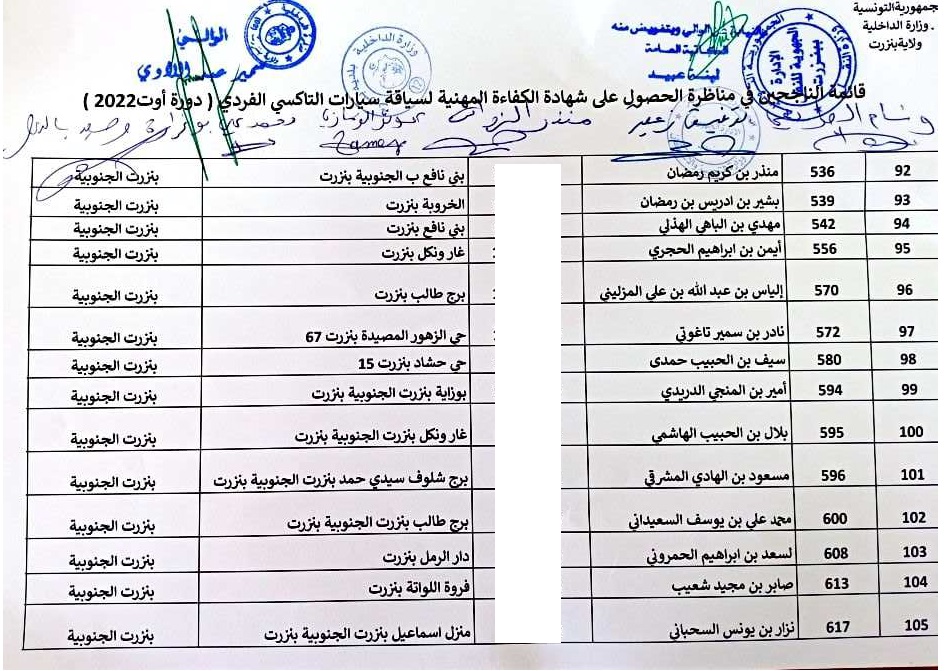 جمهورية التونسية
وزارة الداخلية
ولاية بنزرت
الوالي
سمير عبد اللاوي
الوالي وبتفويض منه
الكاتبة العامة
لبنة عبيد
الإدارة
الجهوية
ببنزرت
وزارة الداخلية
قائمة الناجحين في مناظرة الحصول على شهادة الكفاءة المهنية لسياقة سيارات التاكسي الفردي ( دورة أوت2022 )
92 536 منذر بن كريم رمضان بني نافع ب الجنوبية بنزرت بنزرت الجنوبية
93 539 بشير بن ادريس بن رمضان الخروبة بنزرت بنزرت الجنوبية
94 542 مهدي بن الباهي الهذلي بني نافع بنزرت بنزرت الجنوبية
95 556 أيمن بن ابراهيم الحجري غار ونكل بنزرت بنزرت الجنوبية
96 570 إلياس بن عبد الله بن علي المزليني برج طالب بنزرت بنزرت الجنوبية
97 572 نادر بن سمير تاغوتي حي الزهور المصيدة بنزرت 67 بنزرت الجنوبية
98 580 سيف بن الحبيب حمدى حي حشاد بنزرت 15 بنزرت الجنوبية
99 594 أمير بن المنجي الدريدي بوزاية بنزرت الجنوبية بنزرت بنزرت الجنوبية
100 595 بلال بن الحبيب الهاشمي غار ونكل بنزرت الجنوبية بنزرت بنزرت الجنوبية
101 596 مسعود بن الهادي المشرقي برج شلوف سيدي حمد بنزرت الجنوبية بنزرت بنزرت الجنوبية
102 600 محمد علي بن يوسف السعيداني برج طالب بنزرت الجنوبية بنزرت بنزرت الجنوبية
103 608 لسعد بن ابراهيم الحمروني دار الرمل بنزرت بنزرت الجنوبية
104 613 صابر بن مجيد شعيب فروة اللواتة بنزرت بنزرت الجنوبية
105 617 نزار بن يونس السحباني منزل اسماعيل بنزرت الجنوبية بنزرت بنزرت الجنوبية